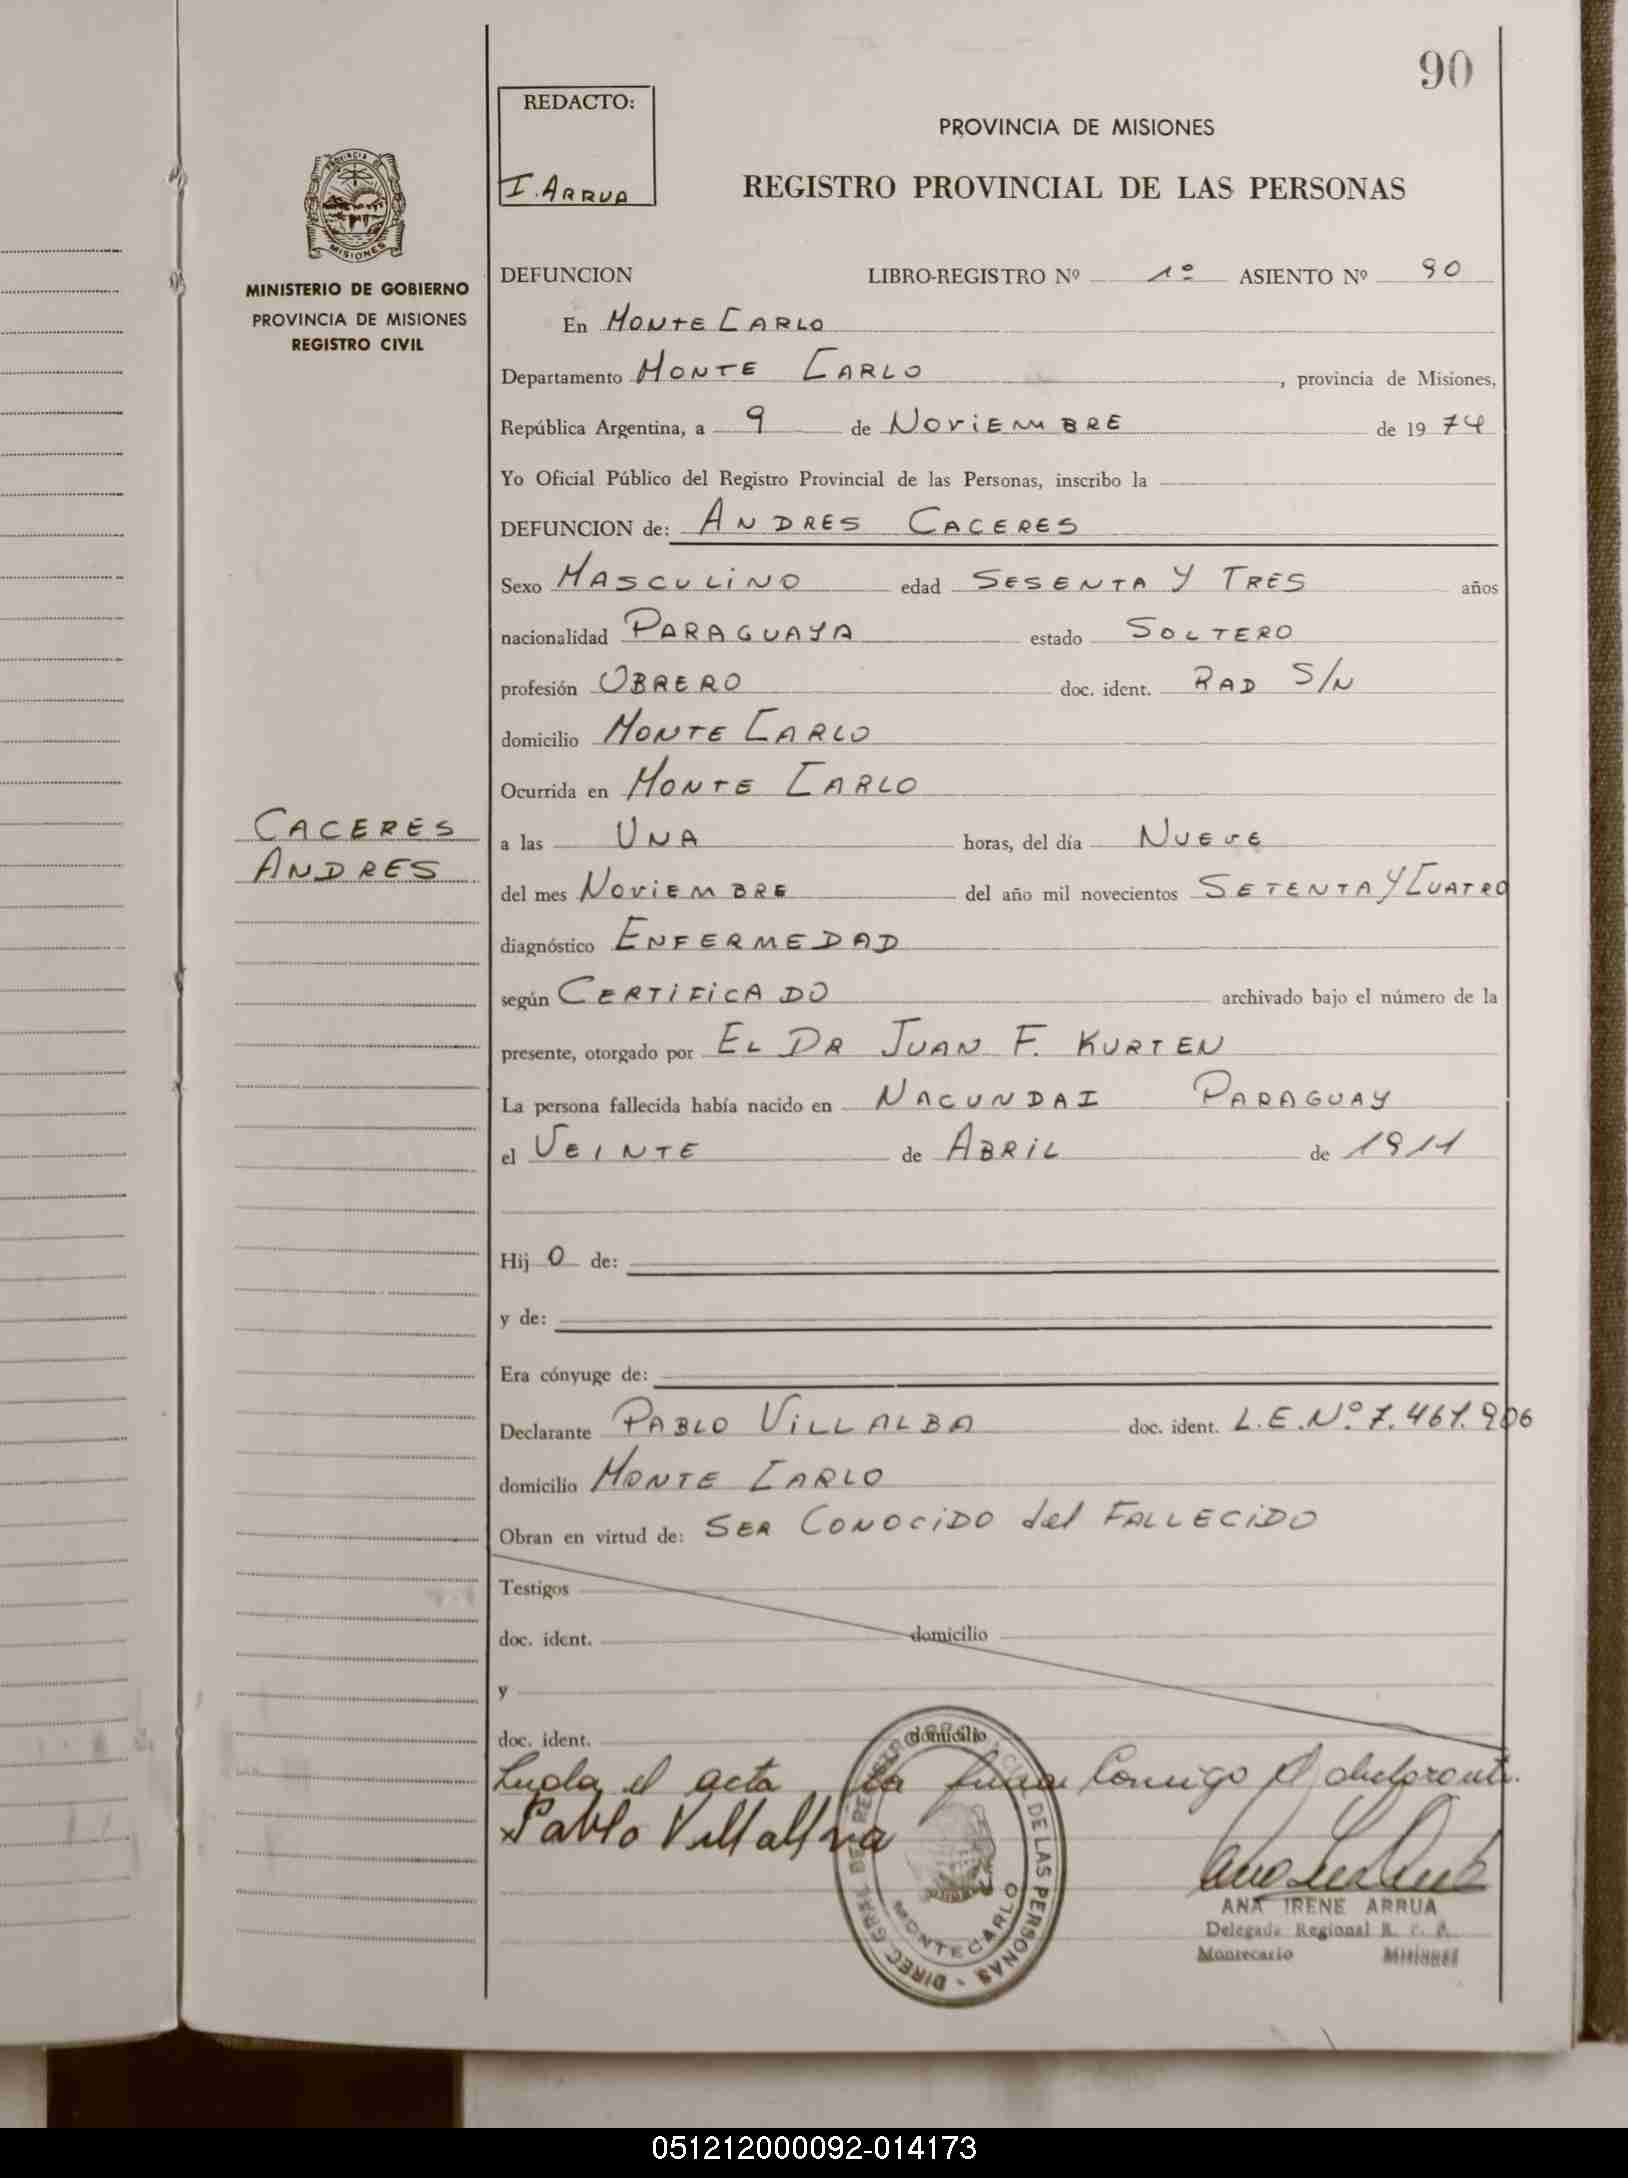 90
REDACTO:
I. ARRUA
PROVINCIA DE MISIONES
REGISTRO PROVINCIAL DE LAS PERSONAS
PROVINCIA DE
MISIONES
MINISTERIO DE GOBIERNO
PROVINCIA DE MISIONES
REGISTRO CIVIL
DEFUNCION LIBRO-REGISTRO Nº 1º ASIENTO Nº 90
En MONTE CARLO
Departamento MONTE CARLO, provincia de Misiones,
República Argentina, a 9 de NOViEMBRE de 1974
Yo Oficial Público del Registro Provincial de las Personas, inscribo la
DEFUNCION de: ANDRES CACERES
Sexo MASCULiNO edad SESENTA Y TRES años
nacionalidad PARAGUAYA estado SOLTERO
profesión OBRERO doc. ident. RAD S/N
domicilio MONTE CARLO
Ocurrida en MONTE CARLO
CACERES
ANDRES
a las UNA horas, del día NUEVE
del mes NOViEMBRE del año mil novecientos SETENTA Y CUATRO
diagnóstico ENFERMEDAD
según CERTiFiCADO archivado bajo el número de la
presente, otorgado por EL DR JUAN F. KURTEN
La persona fallecida había nacido en NACUNDAI PARAGUAY
el VEINTE de ABRiL de 1911
Hij O de:
y de:
Era cónyuge de:
Declarante PABLO ViLLALBA doc. ident. L.E.Nº 7.461.906
domicilio MONTE CARLO
Obran en virtud de: SER CONOCiDO del FALLECiDO
Testigos
doc. ident. domicilio
y
doc. ident. domicilio
el acta la firma Comigo el declarante.
Pablo Villalba
DIREC. GRAL. DE REGISTRO CIVIL DE LAS PERSONAS
MONTECARLO
ANA IRENE ARRUA
Delegada Regional R. C. P.
Montecarlo Misiones
051212000092-014173